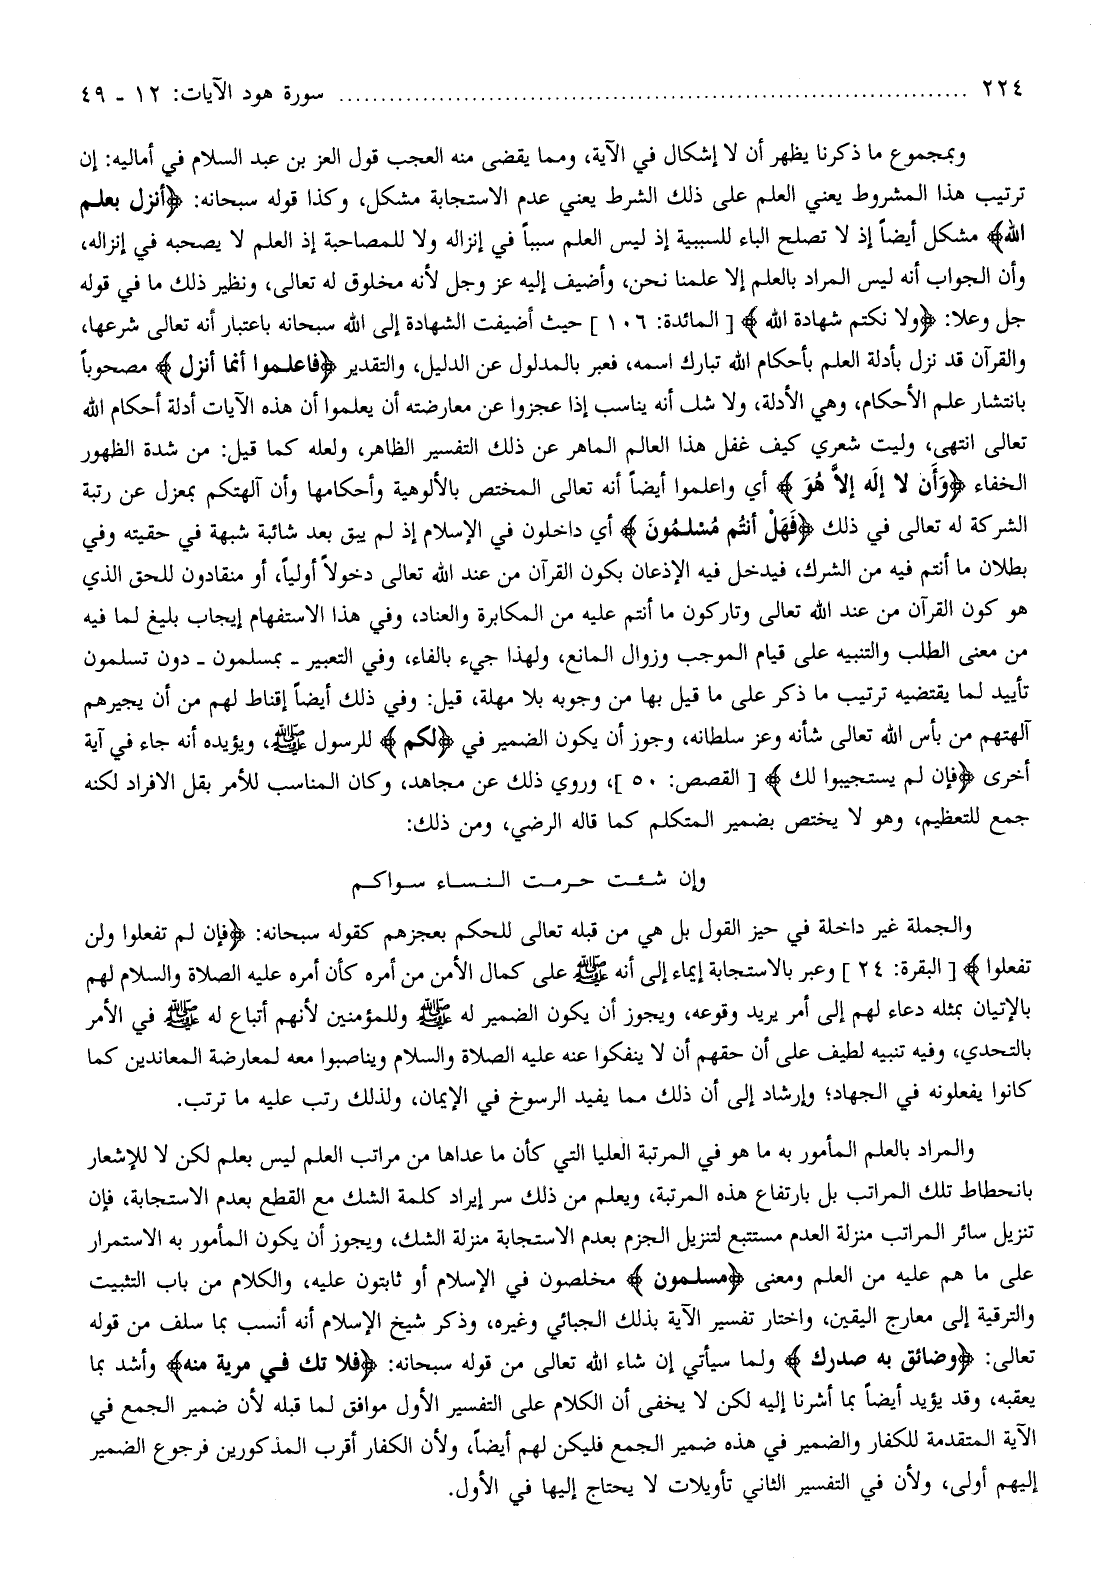 ٢٢٤ ........................................................................... سورة هود الآيات: ١٢ ـ ٤٩
وبمجموع ما ذكرنا يظهر أن لا إشكال في الآية، ومما يقضى منه العجب قول العز بن عبد السلام في أماليه: إن
ترتيب هذا المشروط يعني العلم على ذلك الشرط يعني عدم الاستجابة مشكل، وكذا قوله سبحانه: ﴿أنزل بعلم
الله﴾ مشكل أيضاً إذ لا تصلح الباء للسببية إذ ليس العلم سبباً في إنزاله ولا للمصاحبة إذ العلم لا يصحبه في إنزاله،
وأن الجواب أنه ليس المراد بالعلم إلا علمنا نحن، وأضيف إليه عز وجل لأنه مخلوق له تعالى، ونظير ذلك ما في قوله
جل وعلا: ﴿ولا نكتم شهادة الله﴾ [المائدة: ١٠٦] حيث أضيفت الشهادة إلى الله سبحانه باعتبار أنه تعالى شرعها،
والقرآن قد نزل بأدلة العلم بأحكام الله تبارك اسمه، فعبر بالمدلول عن الدليل، والتقدير ﴿فاعلموا أنما أنزل﴾ مصحوباً
بانتشار علم الأحكام، وهي الأدلة، ولا شك أنه يناسب إذا عجزوا عن معارضته أن يعلموا أن هذه الآيات أدلة أحكام الله
تعالى انتهى، وليت شعري كيف غفل هذا العالم الماهر عن ذلك التفسير الظاهر، ولعله كما قيل: من شدة الظهور
الخفاء ﴿وَأَن لا إلَه إلاَّ هُوَ﴾ أي واعلموا أيضاً أنه تعالى المختص بالألوهية وأحكامها وأن آلهتكم بمعزل عن رتبة
الشركة له تعالى في ذلك ﴿فَهَلْ أنتُم مُسْلمُونَ﴾ أي داخلون في الإسلام إذ لم يبق بعد شائبة شبهة في حقيته وفي
بطلان ما أنتم فيه من الشرك، فيدخل فيه الإذعان بكون القرآن من عند الله تعالى دخولاً أولياً، أو منقادون للحق الذي
هو كون القرآن من عند الله تعالى وتاركون ما أنتم عليه من المكابرة والعناد، وفي هذا الاستفهام إيجاب بليغ لما فيه
من معنى الطلب والتنبيه على قيام الموجب وزوال المانع، ولهذا جيء بالفاء، وفي التعبير ـ بمسلمون ـ دون تسلمون
تأييد لما يقتضيه ترتيب ما ذكر على ما قيل بها من وجوبه بلا مهلة، قيل: وفي ذلك أيضاً إقناط لهم من أن يجيرهم
آلهتهم من بأس الله تعالى شأنه وعز سلطانه، وجوز أن يكون الضمير في ﴿لكم﴾ للرسول ﷺ، ويؤيده أنه جاء في آية
أخرى ﴿فإن لم يستجيبوا لك﴾ [القصص: ٥٠]، وروي ذلك عن مجاهد، وكان المناسب للأمر بقل الافراد لكنه
جمع للتعظيم، وهو لا يختص بضمير المتكلم كما قاله الرضي، ومن ذلك:
وإن شـئـت حـرمـت الـنـسـاء سـواكـم
والجملة غير داخلة في حيز القول بل هي من قبله تعالى للحكم بعجزهم كقوله سبحانه: ﴿فإن لم تفعلوا ولن
تفعلوا﴾ [البقرة: ٢٤] وعبر بالاستجابة إيماء إلى أنه ﷺ على كمال الأمن من أمره كأن أمره عليه الصلاة والسلام لهم
بالإتيان بمثله دعاء لهم إلى أمر يريد وقوعه، ويجوز أن يكون الضمير له ﷺ وللمؤمنين لأنهم أتباع له ﷺ في الأمر
بالتحدي، وفيه تنبيه لطيف على أن حقهم أن لا ينفكوا عنه عليه الصلاة والسلام ويناصبوا معه لمعارضة المعاندين كما
كانوا يفعلونه في الجهاد؛ وإرشاد إلى أن ذلك مما يفيد الرسوخ في الإيمان، ولذلك رتب عليه ما ترتب.
والمراد بالعلم المأمور به ما هو في المرتبة العليا التي كأن ما عداها من مراتب العلم ليس بعلم لكن لا للإشعار
بانحطاط تلك المراتب بل بارتفاع هذه المرتبة، ويعلم من ذلك سر إيراد كلمة الشك مع القطع بعدم الاستجابة، فإن
تنزيل سائر المراتب منزلة العدم مستتبع لتنزيل الجزم بعدم الاستجابة منزلة الشك، ويجوز أن يكون المأمور به الاستمرار
على ما هم عليه من العلم ومعنى ﴿مسلمون﴾ مخلصون في الإسلام أو ثابتون عليه، والكلام من باب التثبيت
والترقية إلى معارج اليقين، واختار تفسير الآية بذلك الجبائي وغيره، وذكر شيخ الإسلام أنه أنسب بما سلف من قوله
تعالى: ﴿وضائق به صدرك﴾ ولما سيأتي إن شاء الله تعالى من قوله سبحانه: ﴿فلا تك في مرية منه﴾ وأشد بما
يعقبه، وقد يؤيد أيضاً بما أشرنا إليه لكن لا يخفى أن الكلام على التفسير الأول موافق لما قبله لأن ضمير الجمع في
الآية المتقدمة للكفار والضمير في هذه ضمير الجمع فليكن لهم أيضاً، ولأن الكفار أقرب المذكورين فرجوع الضمير
إليهم أولى، ولأن في التفسير الثاني تأويلات لا يحتاج إليها في الأول.